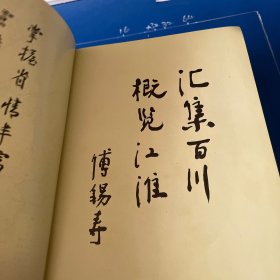 汇集百川
概览江淮
傅锡寿
掌握省情丰富